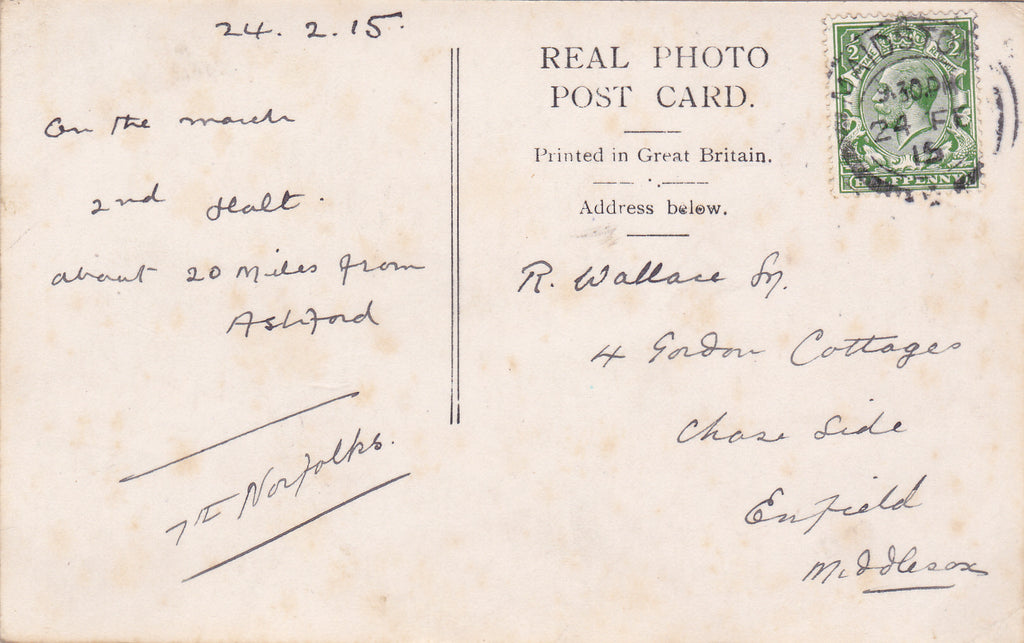 24.2.15.
On the march
2nd Halt.
about 20 miles from
Ashford
7TH Norfolks.
REAL PHOTO
POST CARD.
Printed in Great Britain.
Address below.
R. Wallace
4 Gordon Cottages
Chase Side
Enfield
Middlesex
MAIDSTO
9.30 PM
24 FE
15
HALFPENNY